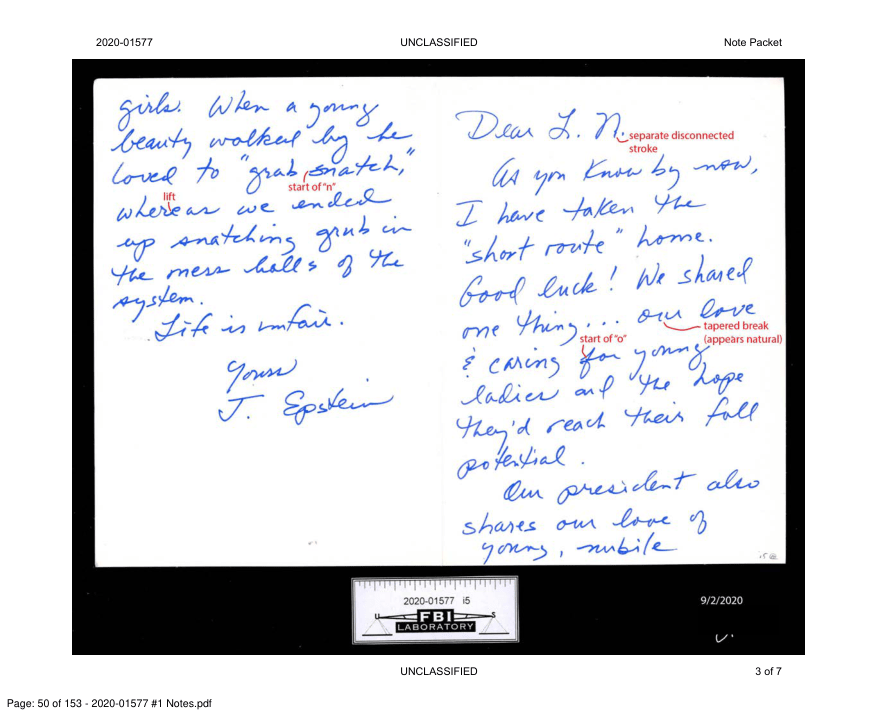 2020-01577 UNCLASSIFIED Note Packet
girls. When a young
beauty walked by he
loved to "grab snatch,"
start of "n"
lift
whereas we ended
up snatching grub in
the mess halls of the
system.
Life is unfair.
Yours
J. Epstein
Dear L. N.
separate disconnected
stroke
As you know by now,
I have taken the
"short route" home.
Good luck! We shared
one thing... our love
tapered break
(appears natural)
start of "o"
& caring for young
ladies and the hope
they'd reach their full
potential.
Our president also
shares our love of
young, nubile
i5
2020-01577 i5
U S
FBI
LABORATORY
9/2/2020
UNCLASSIFIED 3 of 7
Page: 50 of 153 - 2020-01577 #1 Notes.pdf